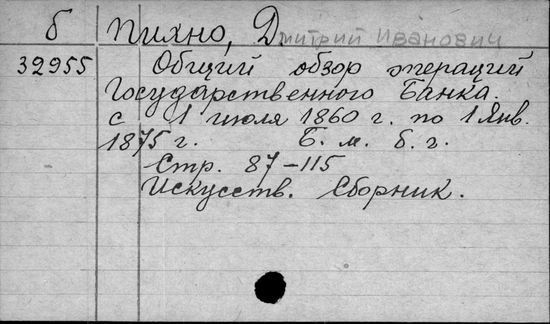 б Пихно, Дмитрий Иванович
32955 Общий обзор операций
Государственного Банка.
с 1 июля 1860 г. по 1 Янв.
1875 г. Б. м. б. г.
Стр. 87-115
Искусств. Сборник.